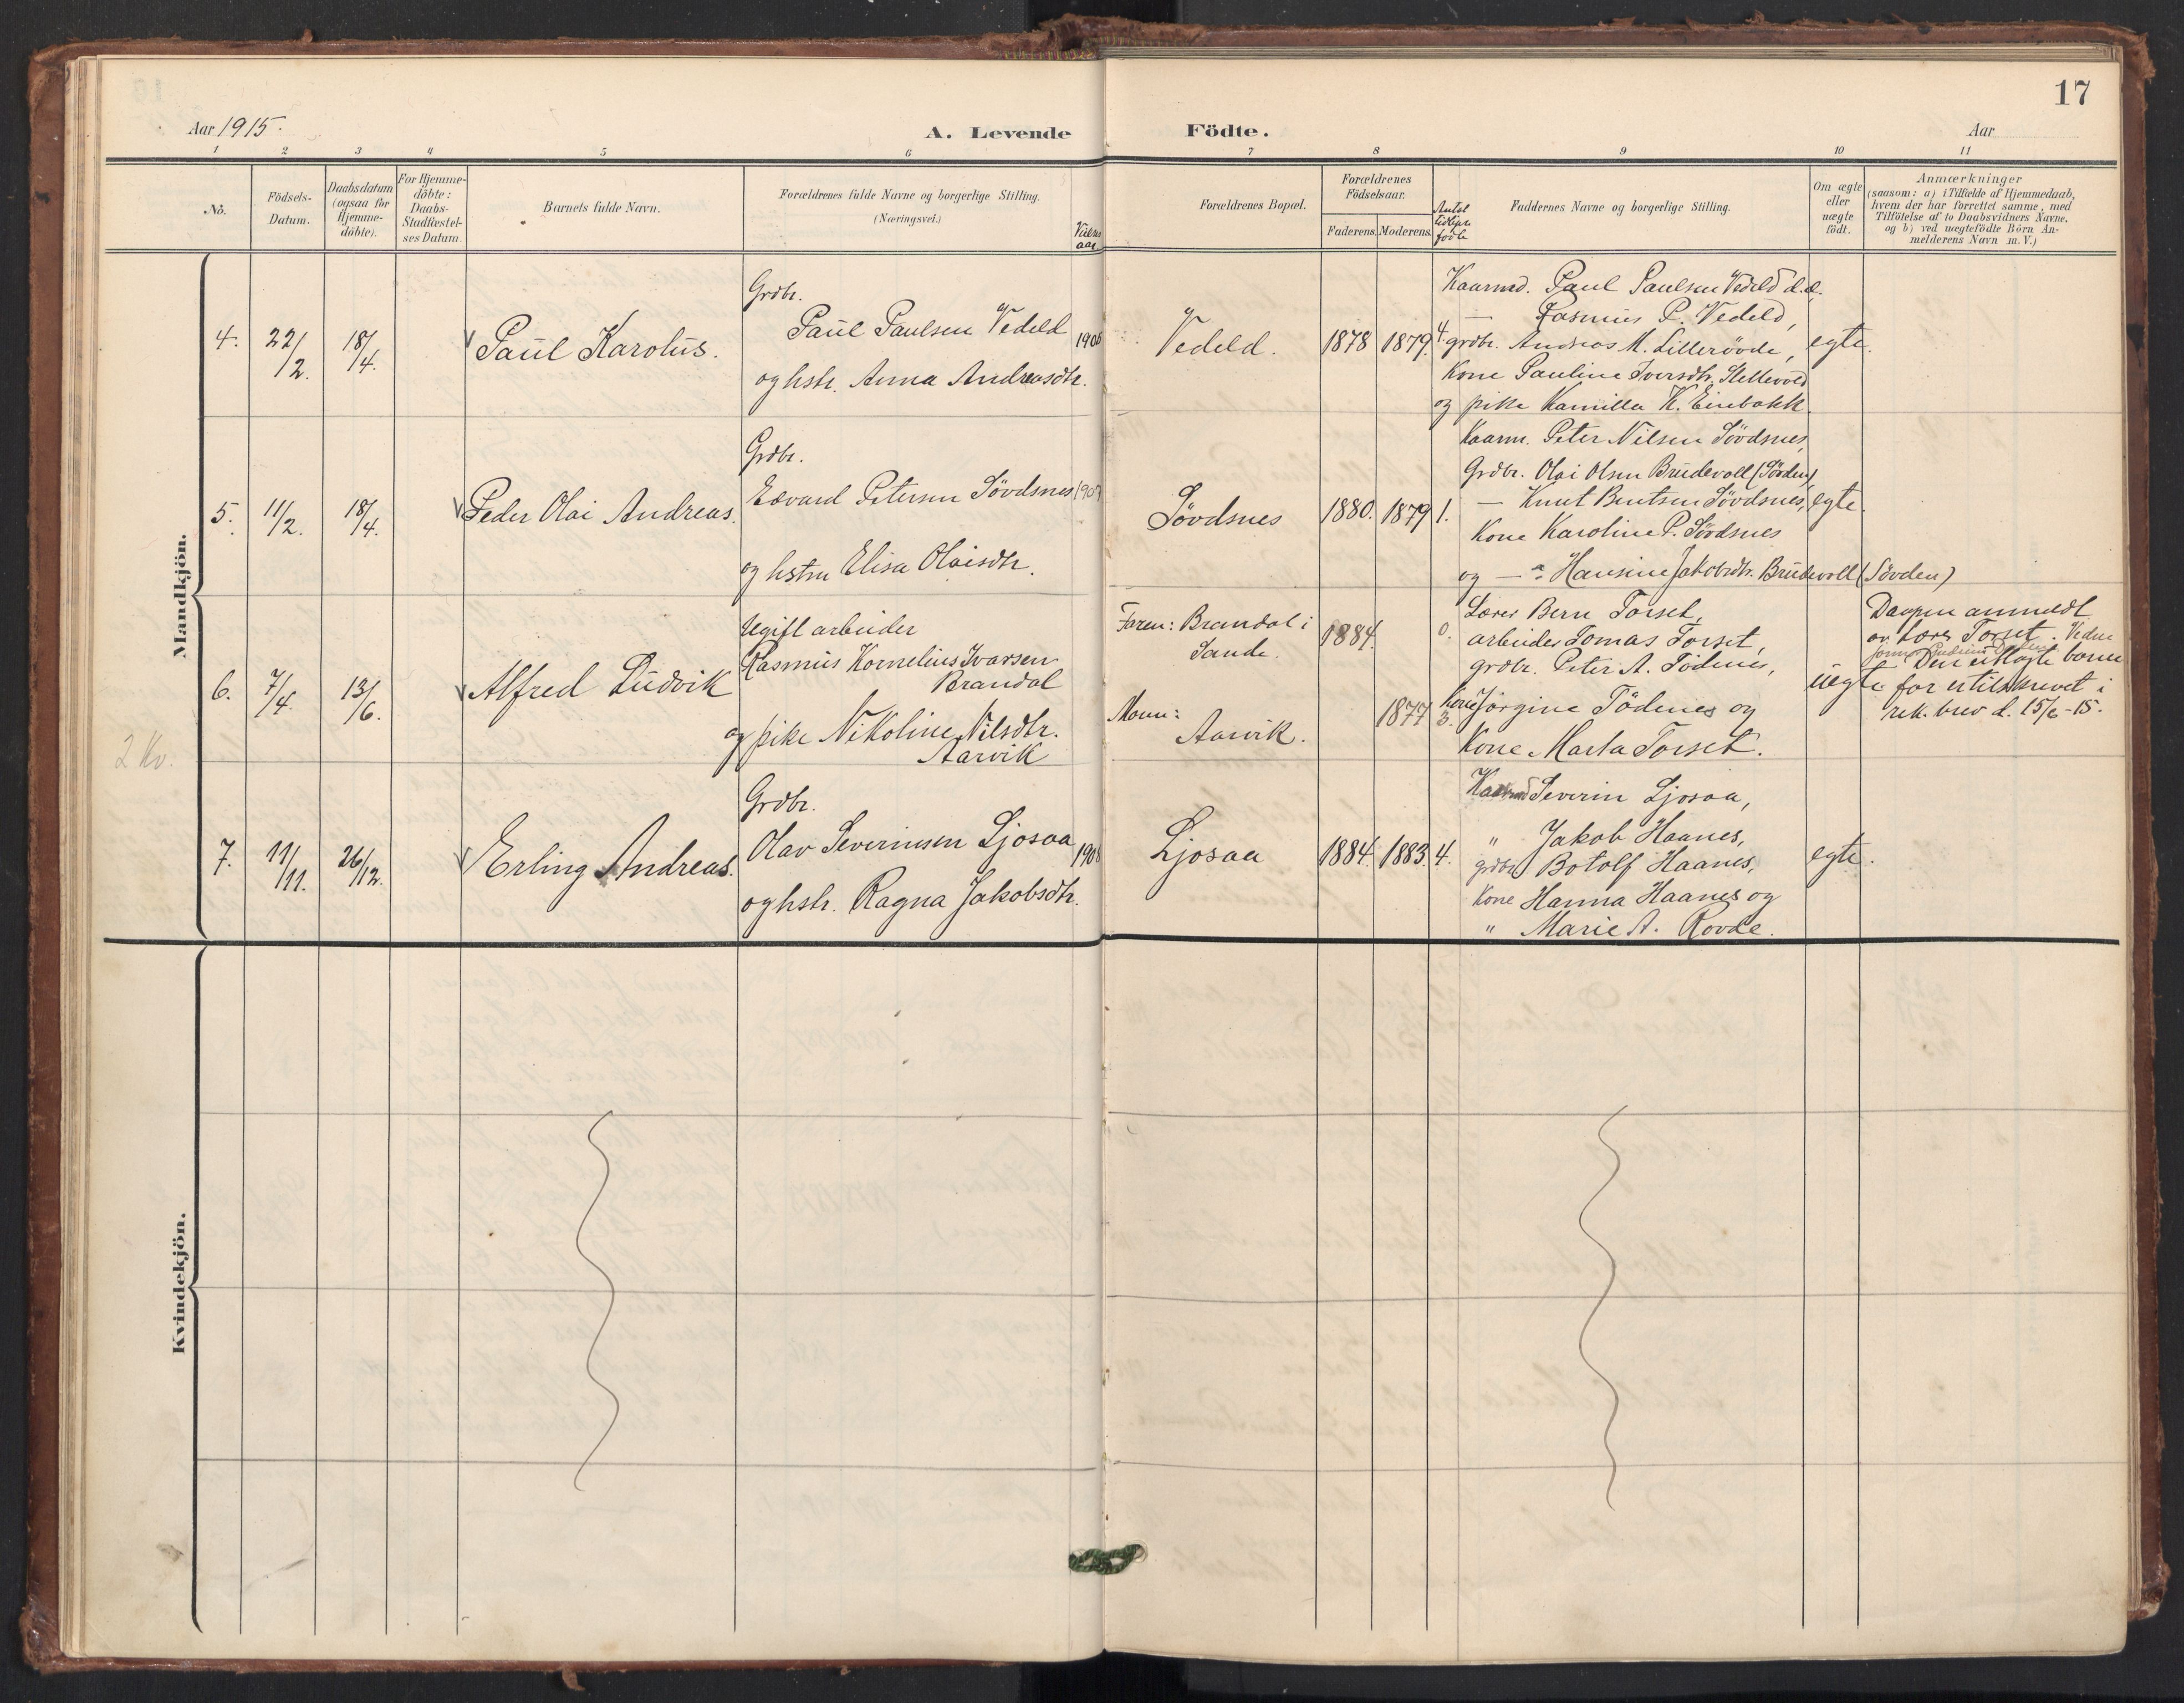 17
Aar 1915.
A. Levende Födte.
Aar
1 2 3 4 5 6 7 8 9 10 11
No.
Födsels-
Datum.
Daabsdatum
(ogsaa for
Hjemme-
döbte).
For Hjemme-
döbte:
Daabs-
Stadfæstel-
ses Datum.
Barnets fulde Navn.
Forældrenes fulde Navne og borgerlige Stilling.
(Næringsvei.)
Vielses
aar
Forældrenes Bopæl.
Forældrenes
Födselsaar.
Faderens. Moderens.
Antal
tidligere
födte
Faddernes Navne og borgerlige Stilling.
Om ægte
eller
uægte
födt.
Anmærkninger
(saasom: a) i Tilfælde af Hjemmedaab,
hvem der har forrettet samme, med
Tilföielse af to Daabsvidners Navne,
og b) ved uægtefödte Börn An-
melderens Navn m. V.)
Mandkjön.
4. 22/2. 18/4. Paul Karolus.
Grdbr.
Paul Paulsen Vedeld 1906
og hstr. Anna Andreasdtr.
Vedeld. 1878 1879. 4.
Kaarmd. Paul Paulsen Vedeld d.æ.
— Rasmus P. Vedeld,
grdbr. Andreas M. Lillerövde,
Kone Pauline Iversdtr. Slettevold
og pike Kamilla K. Einebakk.
egte.
5. 11/2. 18/4. Peder Olai Andreas.
Grdbr.
Edvard Petersen Sövdsnes 1907
og hstru Elisa Olaisdtr.
Sövdsnes 1880. 1879 1.
Kaarm. Peter Nilsen Sövdsnes,
Grdbr. Olai Olsen Brudevoll (Sövden)
— Knut Bentsen Sövdsnes,
Kone Karoline P. Sövdsnes
og — " Hansine Jakobsdtr. Brudevoll (Sövden)
egte.
6. 7/4. 13/6. Alfred Ludvik
Ugift arbeider
Rasmus Kornelius Ivarsen
Brandal
og pike Nikoline Nilsdtr.
Aarvik
Faren: Brandal i
Sande.
1884. 0.
Moren:
Aarvik.
1877 3.
Lærer Bern Torset,
arbeider Tomas Torset,
grdbr. Peter A. Tödenes,
Kone Jörgine Tödenes og
Kone Marta Torset.
uegte
Daapen anmeldt
av Lærer Torset.
Den utlagte barne
far er tilskrevet i
rek. brev d. 15/6-15.
2 Kv.
7. 11/11. 26/12. Erling Andreas.
Grdbr.
Olav Severinsen Ljosaa 1908
og hstr. Ragna Jakobsdtr.
Ljosaa 1884. 1883. 4.
Kaarmd Severin Ljosaa,
" Jakob Haanes,
grdbr Botolf Haanes,
Kone Hanna Haanes og
" Marie A. Rovde.
egte.
Kvindekjön.